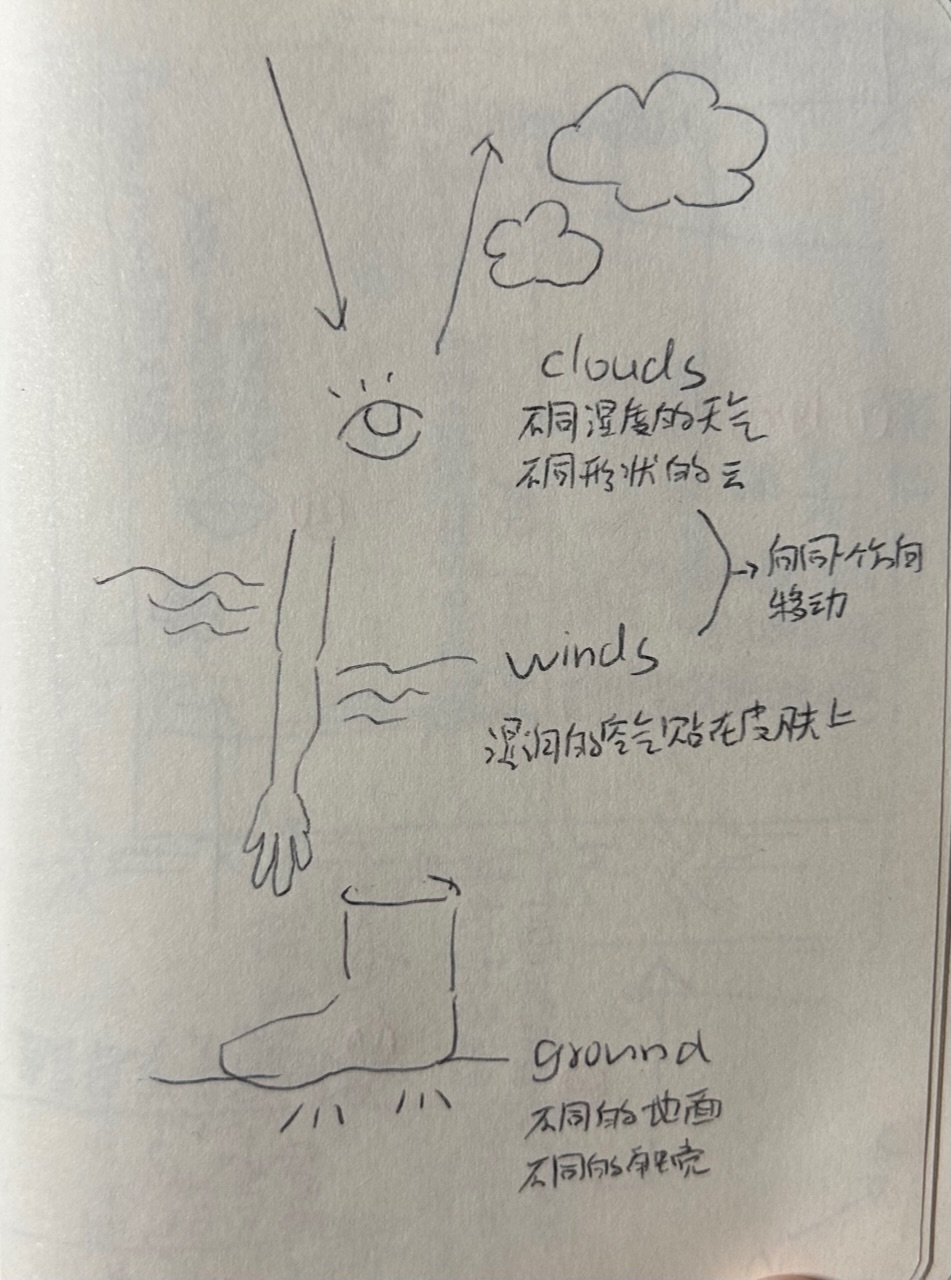 clouds
不同湿度的天气
不同形状的云
向同一个方向
移动
winds
湿润的空气贴在皮肤上
ground
不同的地面
不同的触觉